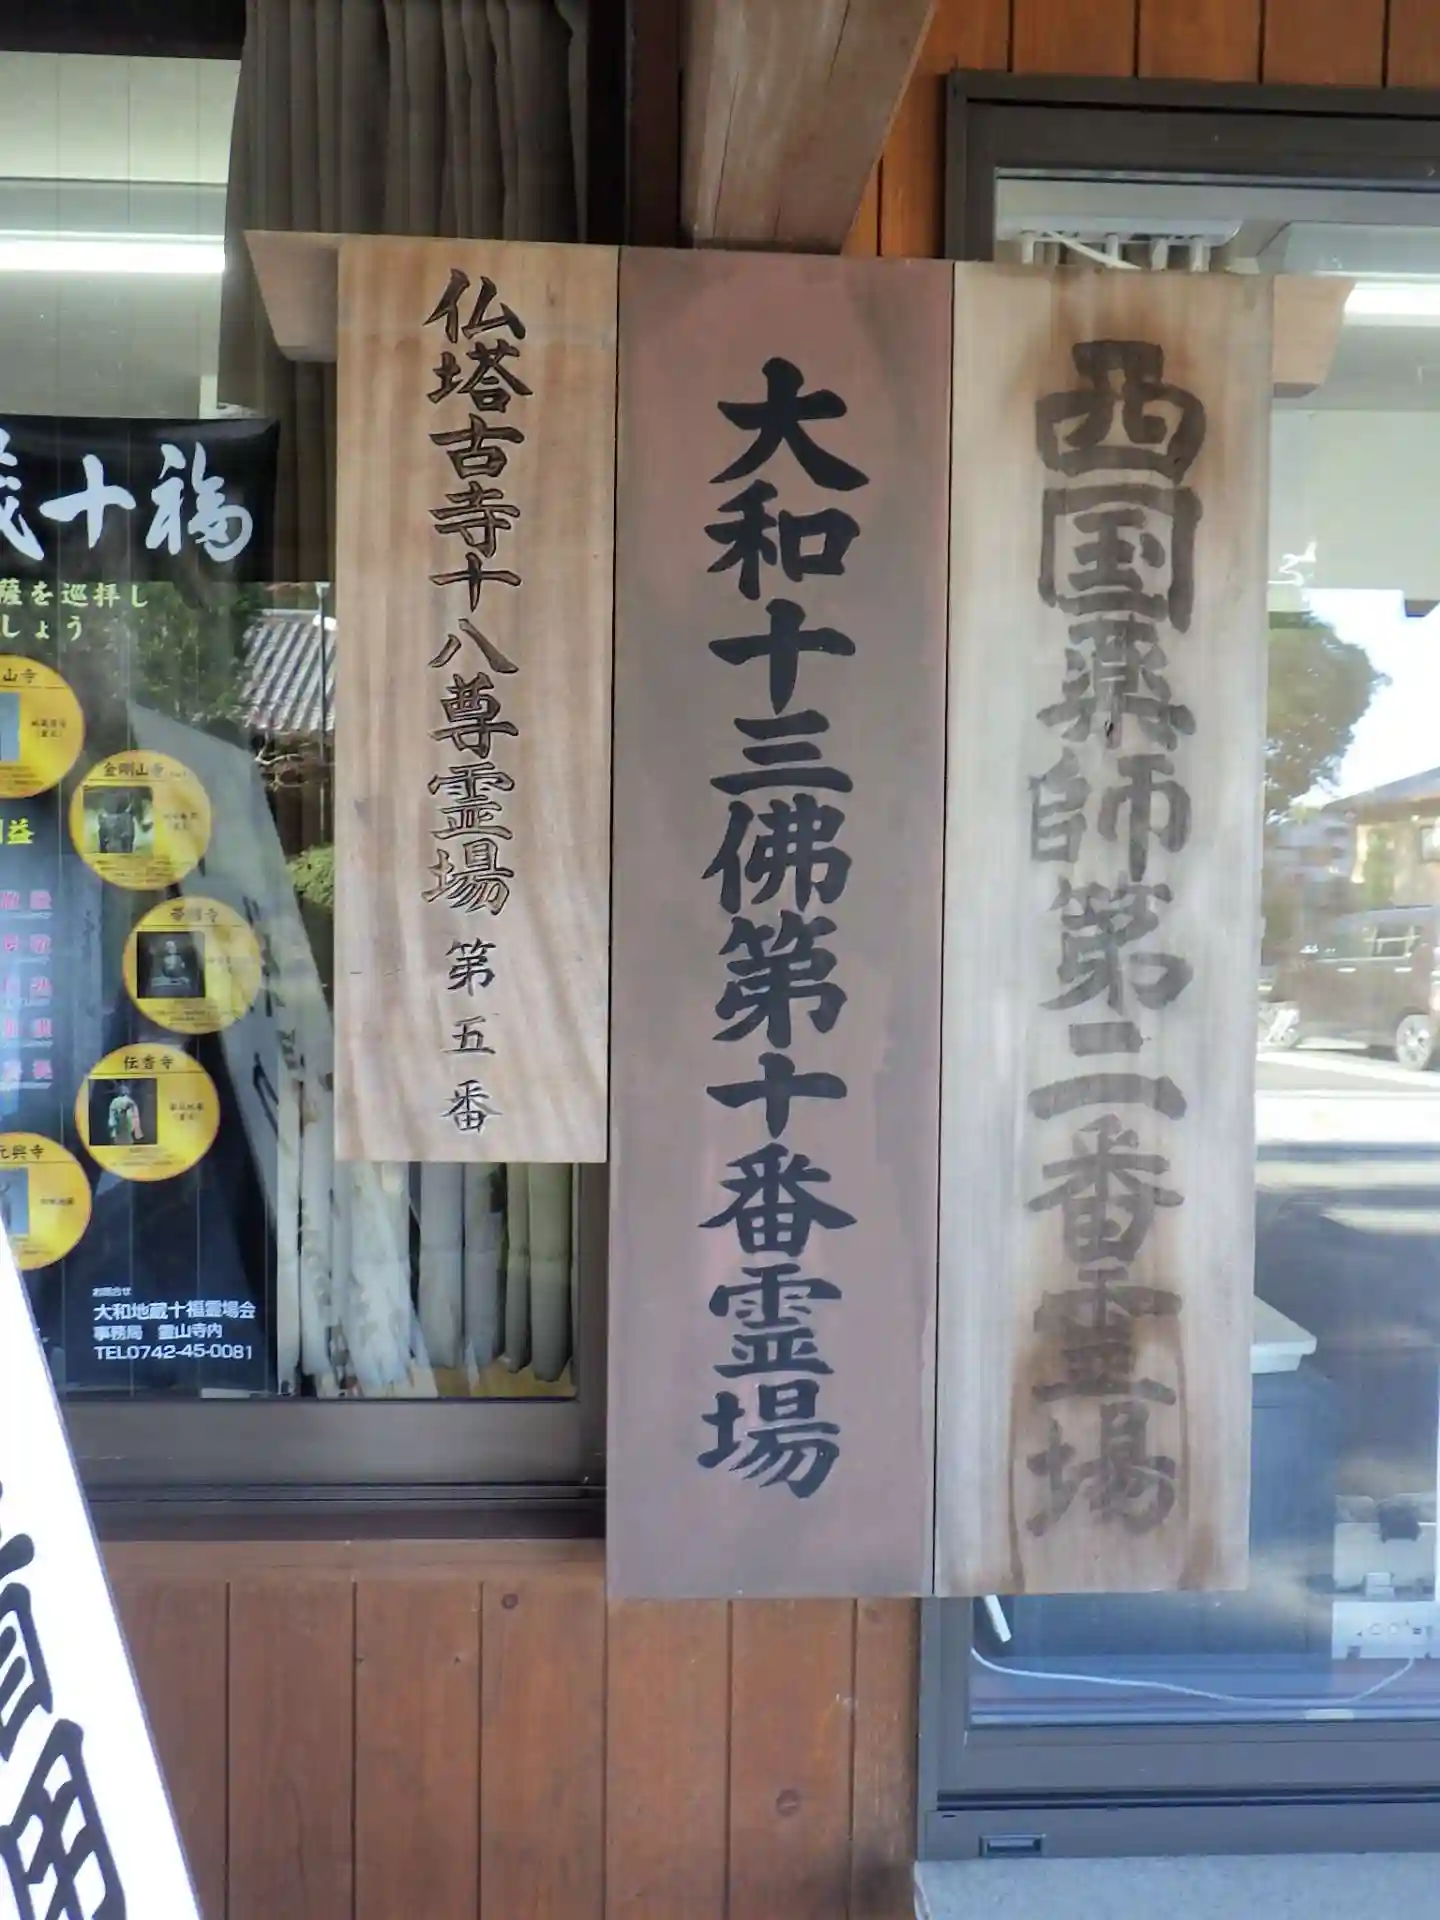 西国薬師第二番霊場
大和十三佛第十番霊場
仏塔古寺十八尊霊場 第五番
十福
薩を巡拝し
しょう
山寺
金剛山寺
帯解寺
伝香寺
元興寺
益
お問合せ
大和地蔵十福霊場会
事務局 霊山寺内
TEL0742-45-0081